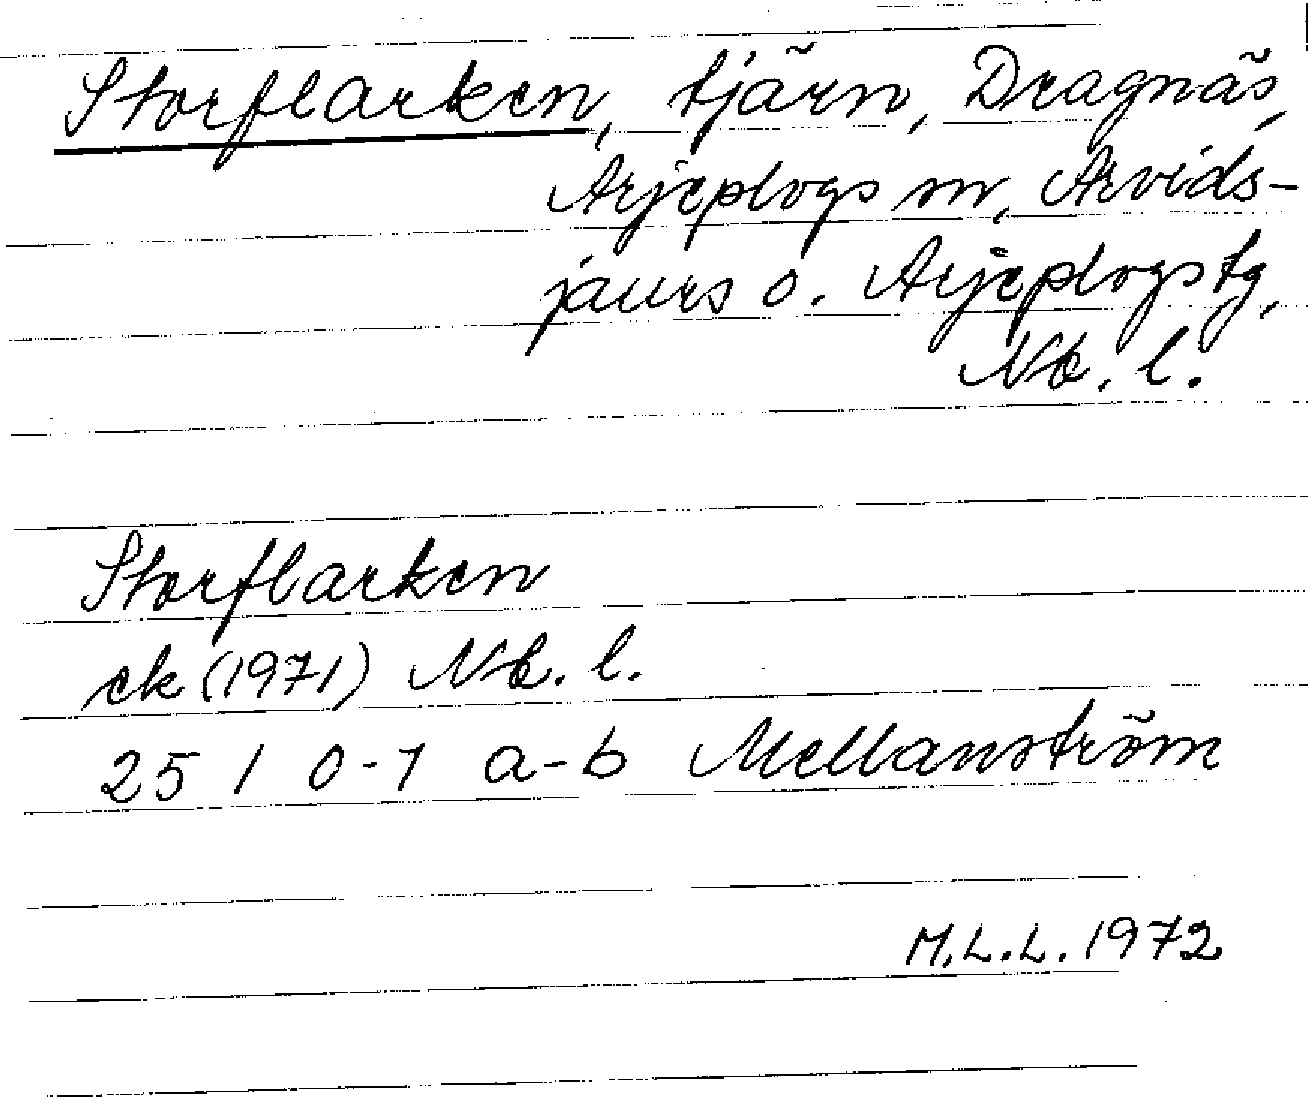 Storflarken, tjärn, Dragnäs,
Arjeplogs sn, Arvids-
jaurs o. Arjeplogs tg,
Nb. l.
Storflarken
ek (1971) Nb. l.
25 I 0-1 a-b Mellanström
M.L.L. 1972